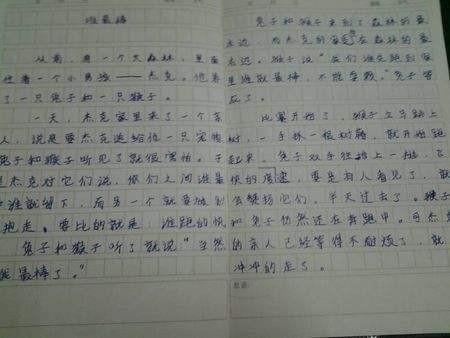 谁最棒
从前,有一个大森林,里面
住着一个小男孩——杰克。他养
了一只兔子和一只猴子。
一天,杰克家里来了一个客
人,说是要杰克送给他一只宠物
兔子和猴子听见了就很害怕。于
是杰克对它们说,你们之间谁最
棒谁就留下,而另一个就要被别
人抱走。要比的就是:谁跑的快
兔子和猴子听了就说"当然
我最棒了。"
兔子和猴子来到了森林的最
边,杰克的家在森林的最
边。猴子说"我们谁先跑到家
里谁就最棒,不能拿别。"兔子答
应了。
比赛开始了,猴子立马踏上
树,一手抓一根树藤,就开始跑
起来,兔子双手往地上一趴,飞
快的奔跑,要是有人看见了,就
会觉得它们,半天过去了。猴子
和兔子仍然还在奔跑中。可杰克
的亲人已经等得不耐烦了,就
冲冲的走了。